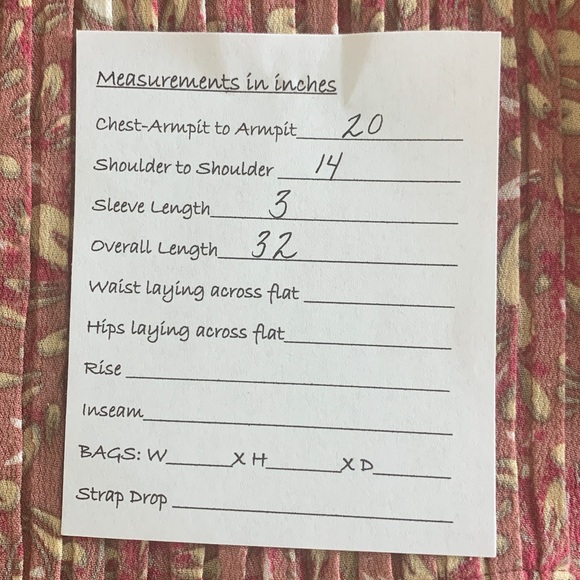 Measurements in inches
Chest-Armpit to Armpit 20
Shoulder to Shoulder 14
Sleeve Length 3
Overall Length 32
Waist laying across flat
Hips laying across flat
Rise
Inseam
BAGS: W______X H______X D______
Strap Drop